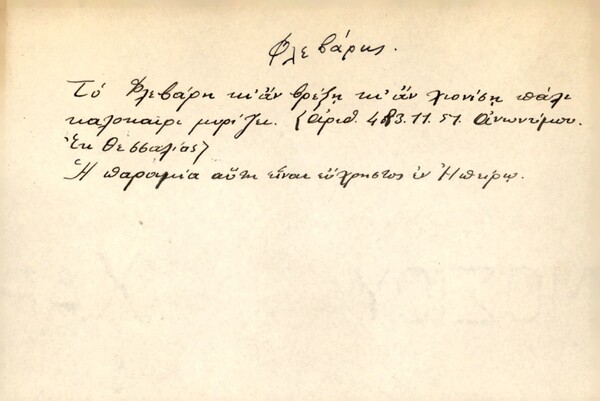 Φλεβάρης.
Τό Φλεβάρη κι' ἄν βρέξῃ κι' ἄν χιονίσῃ πάλι
καλοκαίρι μυρίζει. (ἀριθ. 483.11.51. Ἀνωνύμου.
Ἐκ Θεσσαλίας)
Ἡ παροιμία αὕτη εἶναι εὔχρηστος ἐν Ἠπείρῳ.